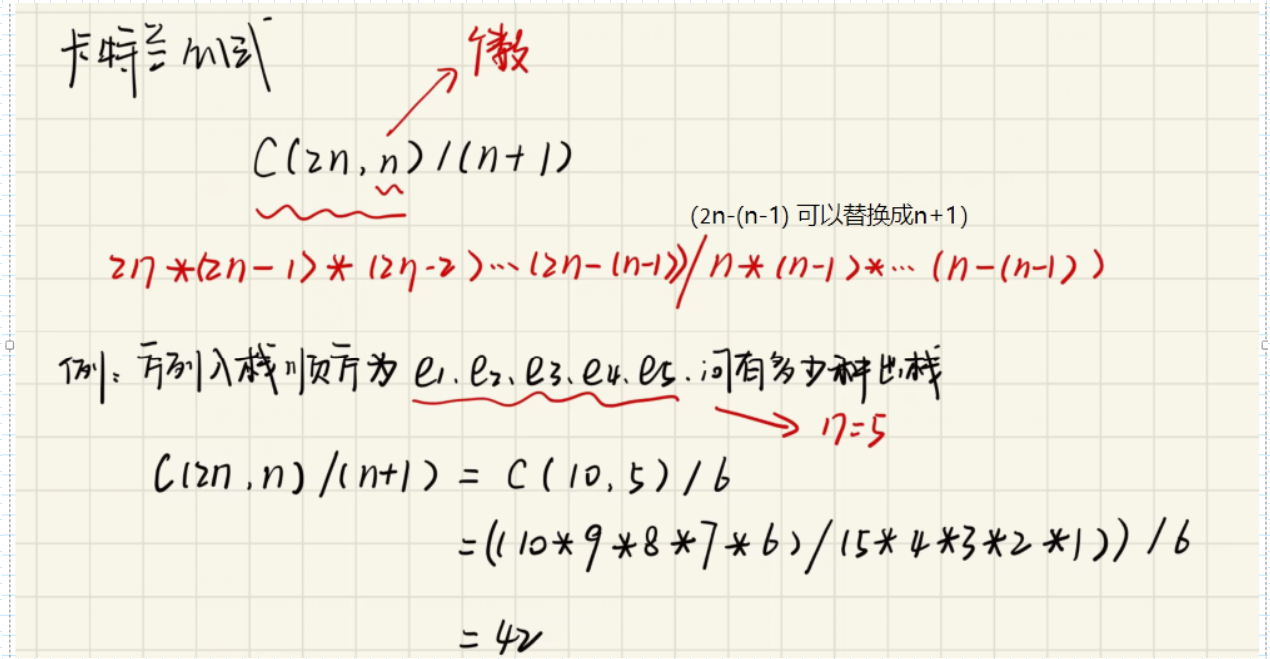 卡特兰公式
个数
C(2n,n)/(n+1)
(2n-(n-1) 可以替换成n+1)
2n*(2n-1)*(2n-2)…(2n-(n-1))/n*(n-1)*…(n-(n-1))
例:序列入栈顺序为e1、e2、e3、e4、e5.问有多少种出栈
n=5
C(2n,n)/(n+1) = C(10,5)/6
=((10*9*8*7*6)/(5*4*3*2*1))/6
= 42